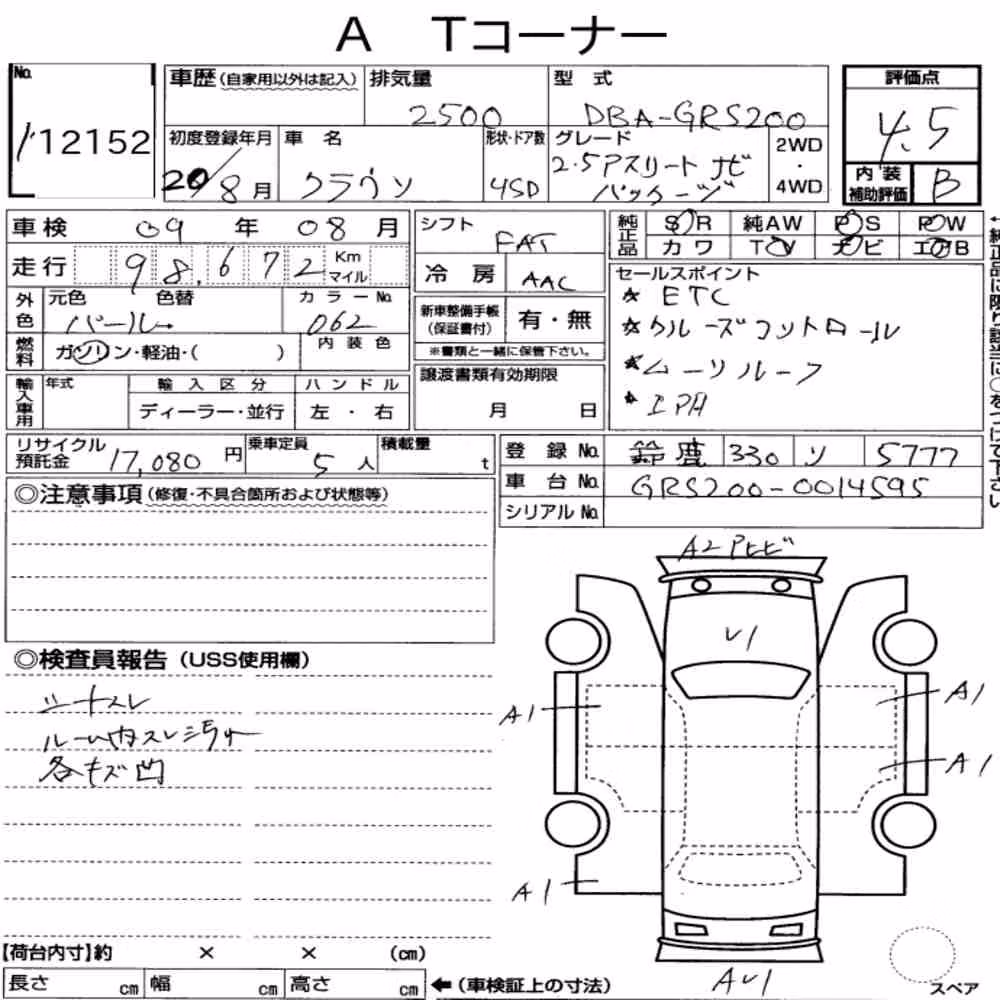 A Tコーナー
No.
12152
車歴 (自家用以外は記入)
排気量 2500
型式 DBA-GRS200
評価点 4.5
初度登録年月 20/8月
車名 クラウン
形状・ドア数 4SD
グレード 2.5アスリート ナビパッケージ
2WD・4WD
内装補助評価 B
車検 09年08月
シフト FAT
純正品 SR 純AW PS PW
カワ TV ナビ エアB
走行 98,672 Km マイル
冷房 AAC
セールスポイント
★ ETC
★ クルーズコントロール
★ ムーンルーフ
★ エアロ
←純正品に限り該当に○をつけて下さい
外色 元色 パール 色替 カラーNo. 062
新車整備手帳(保証書付) 有・無
※書類と一緒に保管下さい。
燃料 ガソリン・軽油・( )
内装色
譲渡書類有効期限 月 日
輸入車用 年式 輸入区分 ハンドル
ディーラー・並行 左・右
リサイクル預託金 17,080円
乗車定員 5人
積載量 t
登録No. 鈴鹿 330 ソ 5777
車台No. GRS200-0014595
シリアルNo.
◎注意事項(修復・不具合箇所および状態等)
A2 Pヒビ
◎検査員報告(USS使用欄)
シートスレ
ルーム内スレ汚れ
各キズ凹
V1
A1
A1
A1
A1
AV1
【荷台内寸】約 × × (cm)
長さ cm 幅 cm 高さ cm ←(車検証上の寸法)
スペア